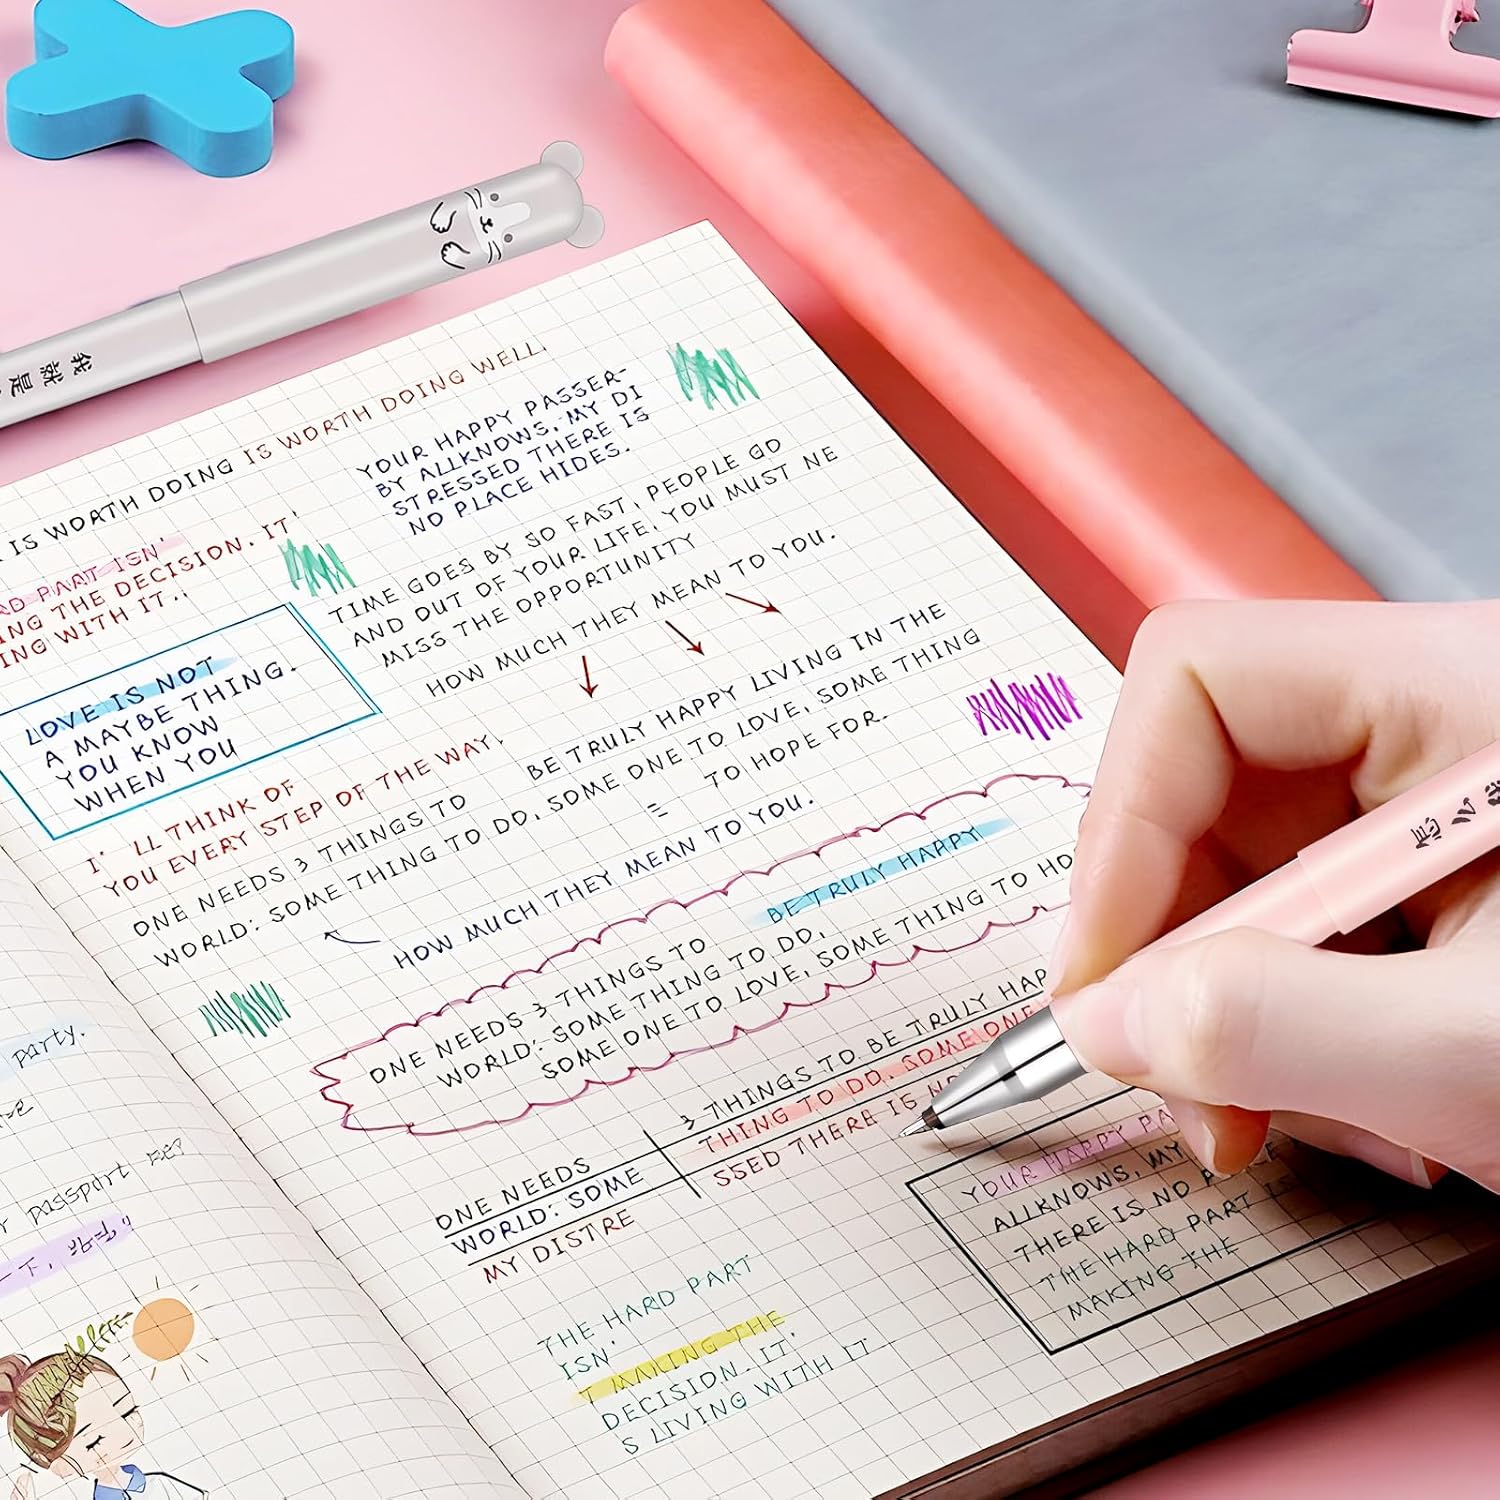 我就是
IS WORTH DOING IS WORTH DOING WELL.
PART ISN'
ING THE DECISION. IT'
ING WITH IT..
YOUR HAPPY PASSER-
BY ALLKNOWS, MY DI
STRESSED THERE IS
NO PLACE HIDES.
TIME GOES BY SO FAST, PEOPLE GO
AND OUT OF YOUR LIFE. YOU MUST NE
MISS THE OPPORTUNITY
HOW MUCH THEY MEAN TO YOU.
LOVE IS NOT
A MAYBE THING.
YOU KNOW
WHEN YOU
I' LL THINK OF
YOU EVERY STEP OF THE WAY.
BE TRULY HAPPY LIVING IN THE
ONE NEEDS 3 THINGS TO
WORLD: SOME THING TO DO, SOME ONE TO LOVE, SOME THING
= TO HOPE FOR.
HOW MUCH THEY MEAN TO YOU.
BE TRULY HAPPY
ONE NEEDS 3 THINGS TO
WORLD: SOME THING TO DO,
SOME ONE TO LOVE, SOME THING TO HO
3 THINGS TO BE TRULY HAP
THING TO DO. SOME ONE
SSED THERE IS NO
ONE NEEDS
WORLD: SOME
MY DISTRE
YOUR HAPPY PA
ALLKNOWS, MY
THERE IS NO
THE HARD PART
MAKING THE
THE HARD PART
ISN'
T MAKING THE
DECISION. IT'
S LIVING WITH IT
party.
passport